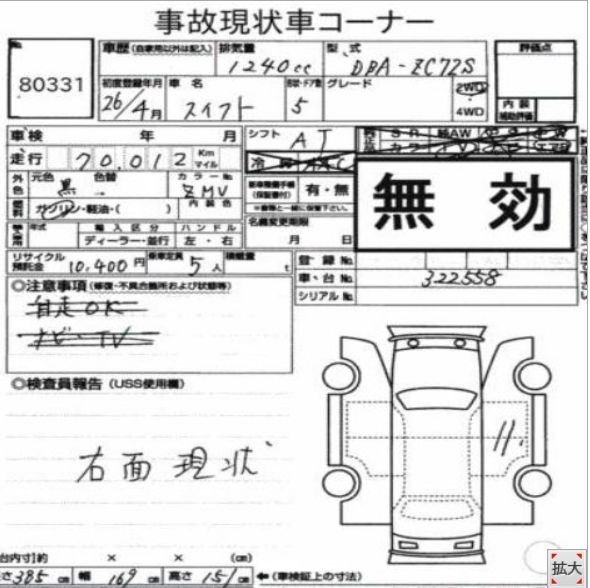 事故現状車コーナー
No. 80331
車歴 (自家用以外は記入) 排気量 1240cc 型式 DBA-ZC72S 評価点
初度登録年月 26/4月 車名 スイフト 5 グレード 2WD 4WD 内装 補助評価
車検 年 月 シフト AT
走行 70,012 Km マイル
無効
外色 元色 黒 色替 カラーNo. ZMV 有・無
燃料 ガソリン・軽油・( ) 内装色
名義変更期限 月 日
年式 輸入区分 ハンドル
ディーラー・並行 左・右
リサイクル預託金 10,400円 乗車定員 5人 積載量 t 登録No.
車・台No. 322558
シリアルNo.
◎注意事項 (修復・不具合箇所および状態等)
自走OK
ナビ・TV
◎検査員報告 (USS使用欄)
右面現状
台内寸)約 × × (cm)
さ385cm 幅169cm 高さ151cm ←(車検証上の寸法)
拡大